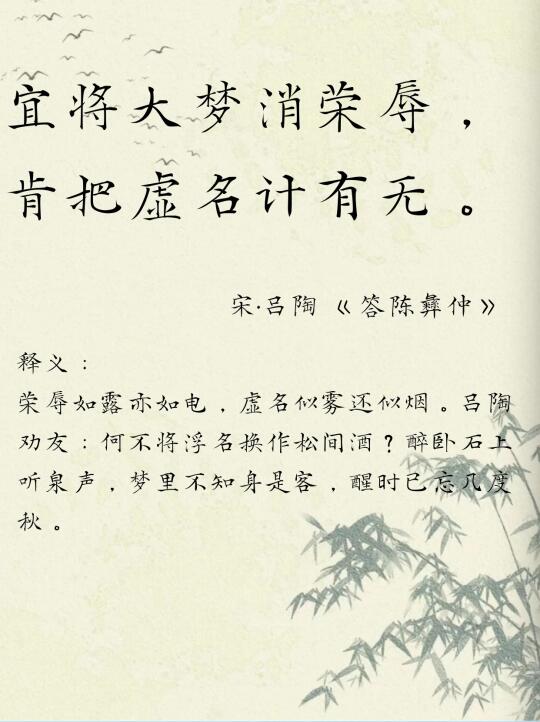 宜将大梦消荣辱，
肯把虚名计有无。
宋·吕陶《答陈彝仲》
释义：
荣辱如露亦如电，虚名似雾还似烟。吕陶
劝友：何不将浮名换作松间酒？醉卧石上
听泉声，梦里不知身是客，醒时已忘几度
秋。